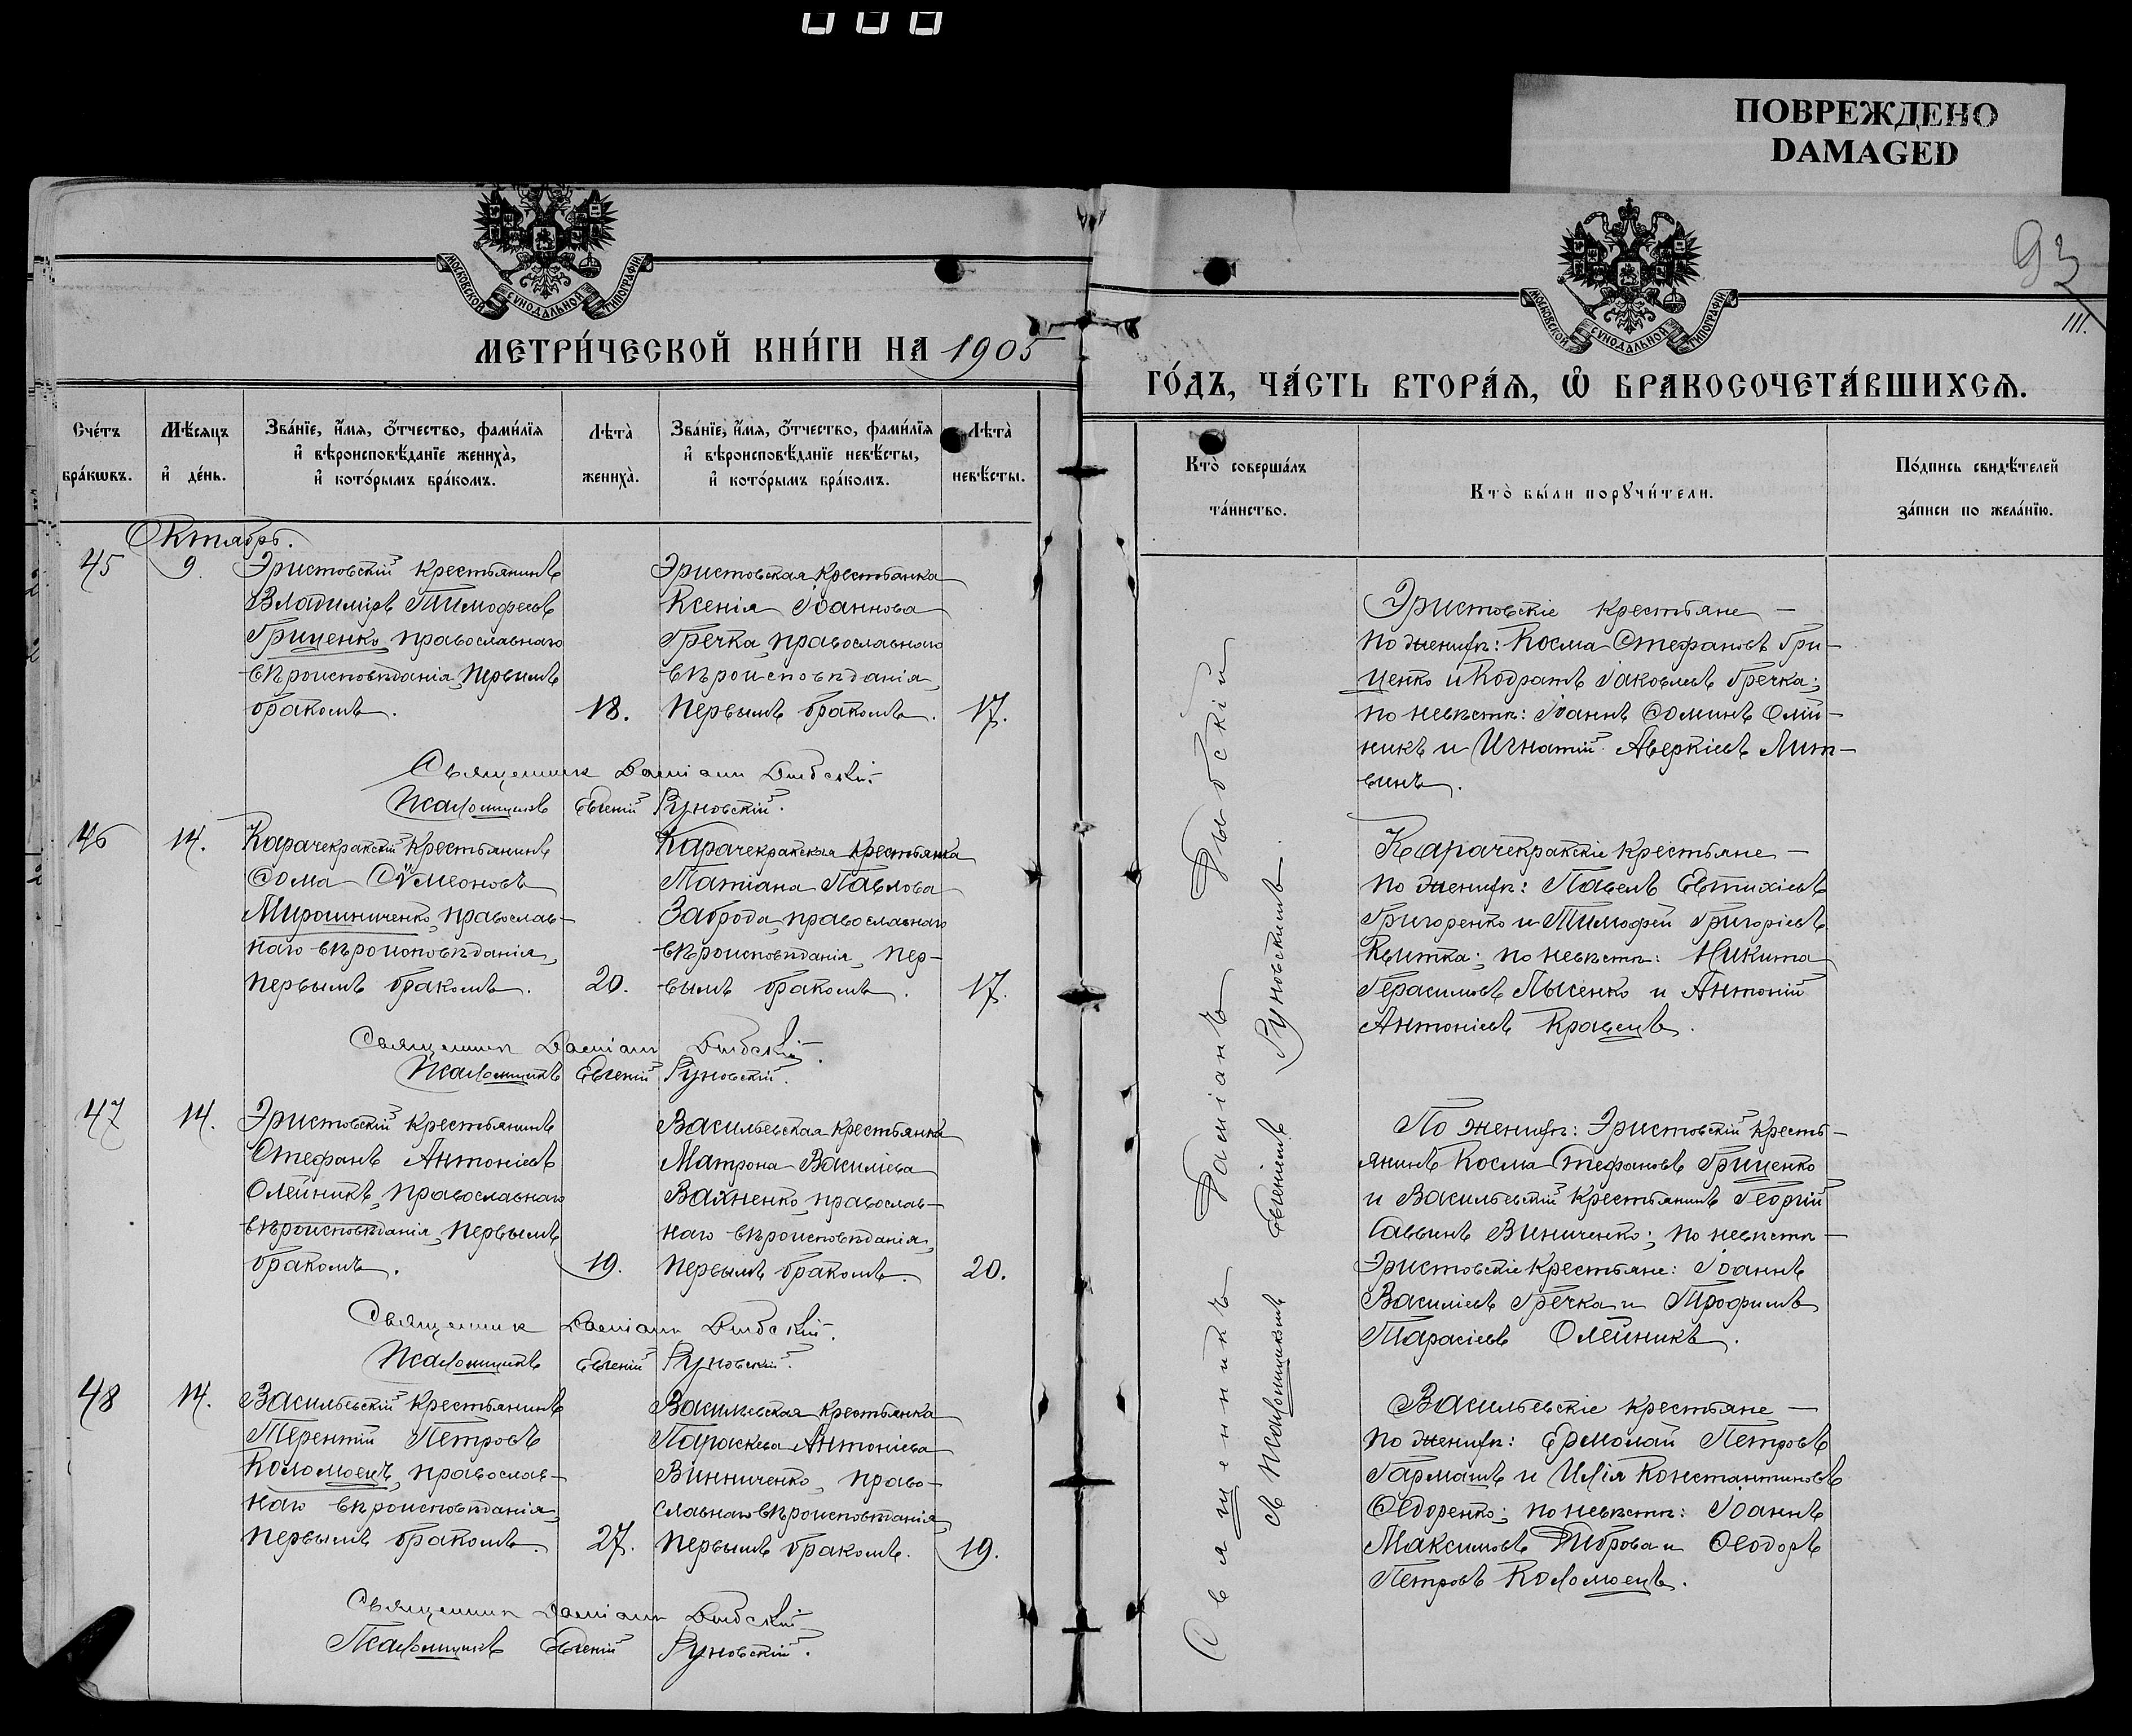 ПОВРЕЖДЕНО
DAMAGED
93
III.
МОСКОВСКОЙ СѴНОДАЛЬНОЙ ТИПОГРАФІИ
МОСКОВСКОЙ СѴНОДАЛЬНОЙ ТИПОГРАФІИ
МЕТРИ́ЧЕСКОЙ КНИ́ГИ НА 1905
ГО́ДЪ, ЧА́СТЬ ВТОРА́Ѧ, Ѽ БРАКОСОЧЕТА́ВШИХСѦ.
Сче́тъ бра́кѡвъ.
Мѣ́сяцъ и҆ де́нь.
Зва́нїе, и҆́мя, ѻ҆́тчество, фами́лїя и҆ вѣроисповѣ́данїе жениха̀, и҆ кото́рымъ бра́комъ.
Лѣта̀ жениха̀.
Зва́нїе, и҆́мя, ѻ҆́тчество, фами́лїя и҆ вѣроисповѣ́данїе невѣ́сты, и҆ кото́рымъ бра́комъ.
Лѣта̀ невѣ́сты.
Кто̀ соверша́лъ та́инство.
Кто̀ бы́ли порꙋчи́тели.
По́дпись свидѣ́телей за́писи по жела́нїю.
Октябрь.
45
9.
Эристовскій крестьянинъ
Владиміръ Тимофеевъ
Гриценко, православнаго
вѣроисповѣданія, первымъ
бракомъ.
18.
Эристовская крестьянка
Ксенія Іоаннова
Гречка, православнаго
вѣроисповѣданія,
первымъ бракомъ.
17.
Эристовскіе крестьяне —
по женихѣ: Косма Стефановъ Гри-
ценко и Кодратъ Іаковлевъ Гречка;
по невѣстѣ: Іоаннъ Ѳоминъ Олій-
никъ и Игнатій Аверкіевъ Лит-
винъ.
Священникъ Даміанъ Дыбскій.
Псаломщикъ Евгеній Руновскій.
46
14.
Карачекракскій крестьянинъ
Ѳома Сѵмеоновъ
Мирошниченко, православ-
наго вѣроисповѣданія,
первымъ бракомъ.
20.
Карачекракская крестьянка
Татіана Павлова
Заброда, православнаго
вѣроисповѣданія, пер-
вымъ бракомъ.
17.
Карачекракскіе крестьяне —
по женихѣ: Павелъ Евтихіевъ
Григоренко и Тимофей Григоріевъ
Квитка; по невѣстѣ: Никита
Герасимовъ Лысенко и Антоній
Антоніевъ Кравецъ.
Священникъ Даміанъ Дыбскій.
Псаломщикъ Евгеній Руновскій.
47
14.
Эристовскій крестьянинъ
Стефанъ Антоніевъ
Олейникъ, православнаго
вѣроисповѣданія, первымъ
бракомъ.
19.
Васильевская крестьянка
Матрона Василіева
Вахненко, православ-
наго вѣроисповѣданія,
первымъ бракомъ.
20.
По женихѣ: Эристовскій кресть-
янинъ Косма Стефановъ Гриценко
и Васильевскій крестьянинъ Георгій
Саввинъ Виниченко; по невѣстѣ —
Эристовскіе крестьяне: Іоаннъ
Василіевъ Гречка и Трофимъ
Тарасіевъ Олейникъ.
Священникъ Даміанъ Дыбскій.
Псаломщикъ Евгеній Руновскій.
48
14.
Васильевскій крестьянинъ
Терентій Петровъ
Коломоецъ, православ-
наго вѣроисповѣданія,
первымъ бракомъ.
27.
Васильевская крестьянка
Параскева Антоніева
Винниченко, право-
славнаго вѣроисповѣданія,
первымъ бракомъ.
19.
Васильевскіе крестьяне —
по женихѣ: Ермолай Петровъ
Гармашъ и Илія Константиновъ
Ѳедоренко; по невѣстѣ: Іоаннъ
Максимовъ Диброва и Ѳеодоръ
Петровъ Коломоецъ.
Священникъ Даміанъ Дыбскій
Псаломщикъ Евгеній Руновскій.
Священникъ Даміанъ Дыбскій
съ псаломщикомъ Евгеніемъ Руновскимъ.